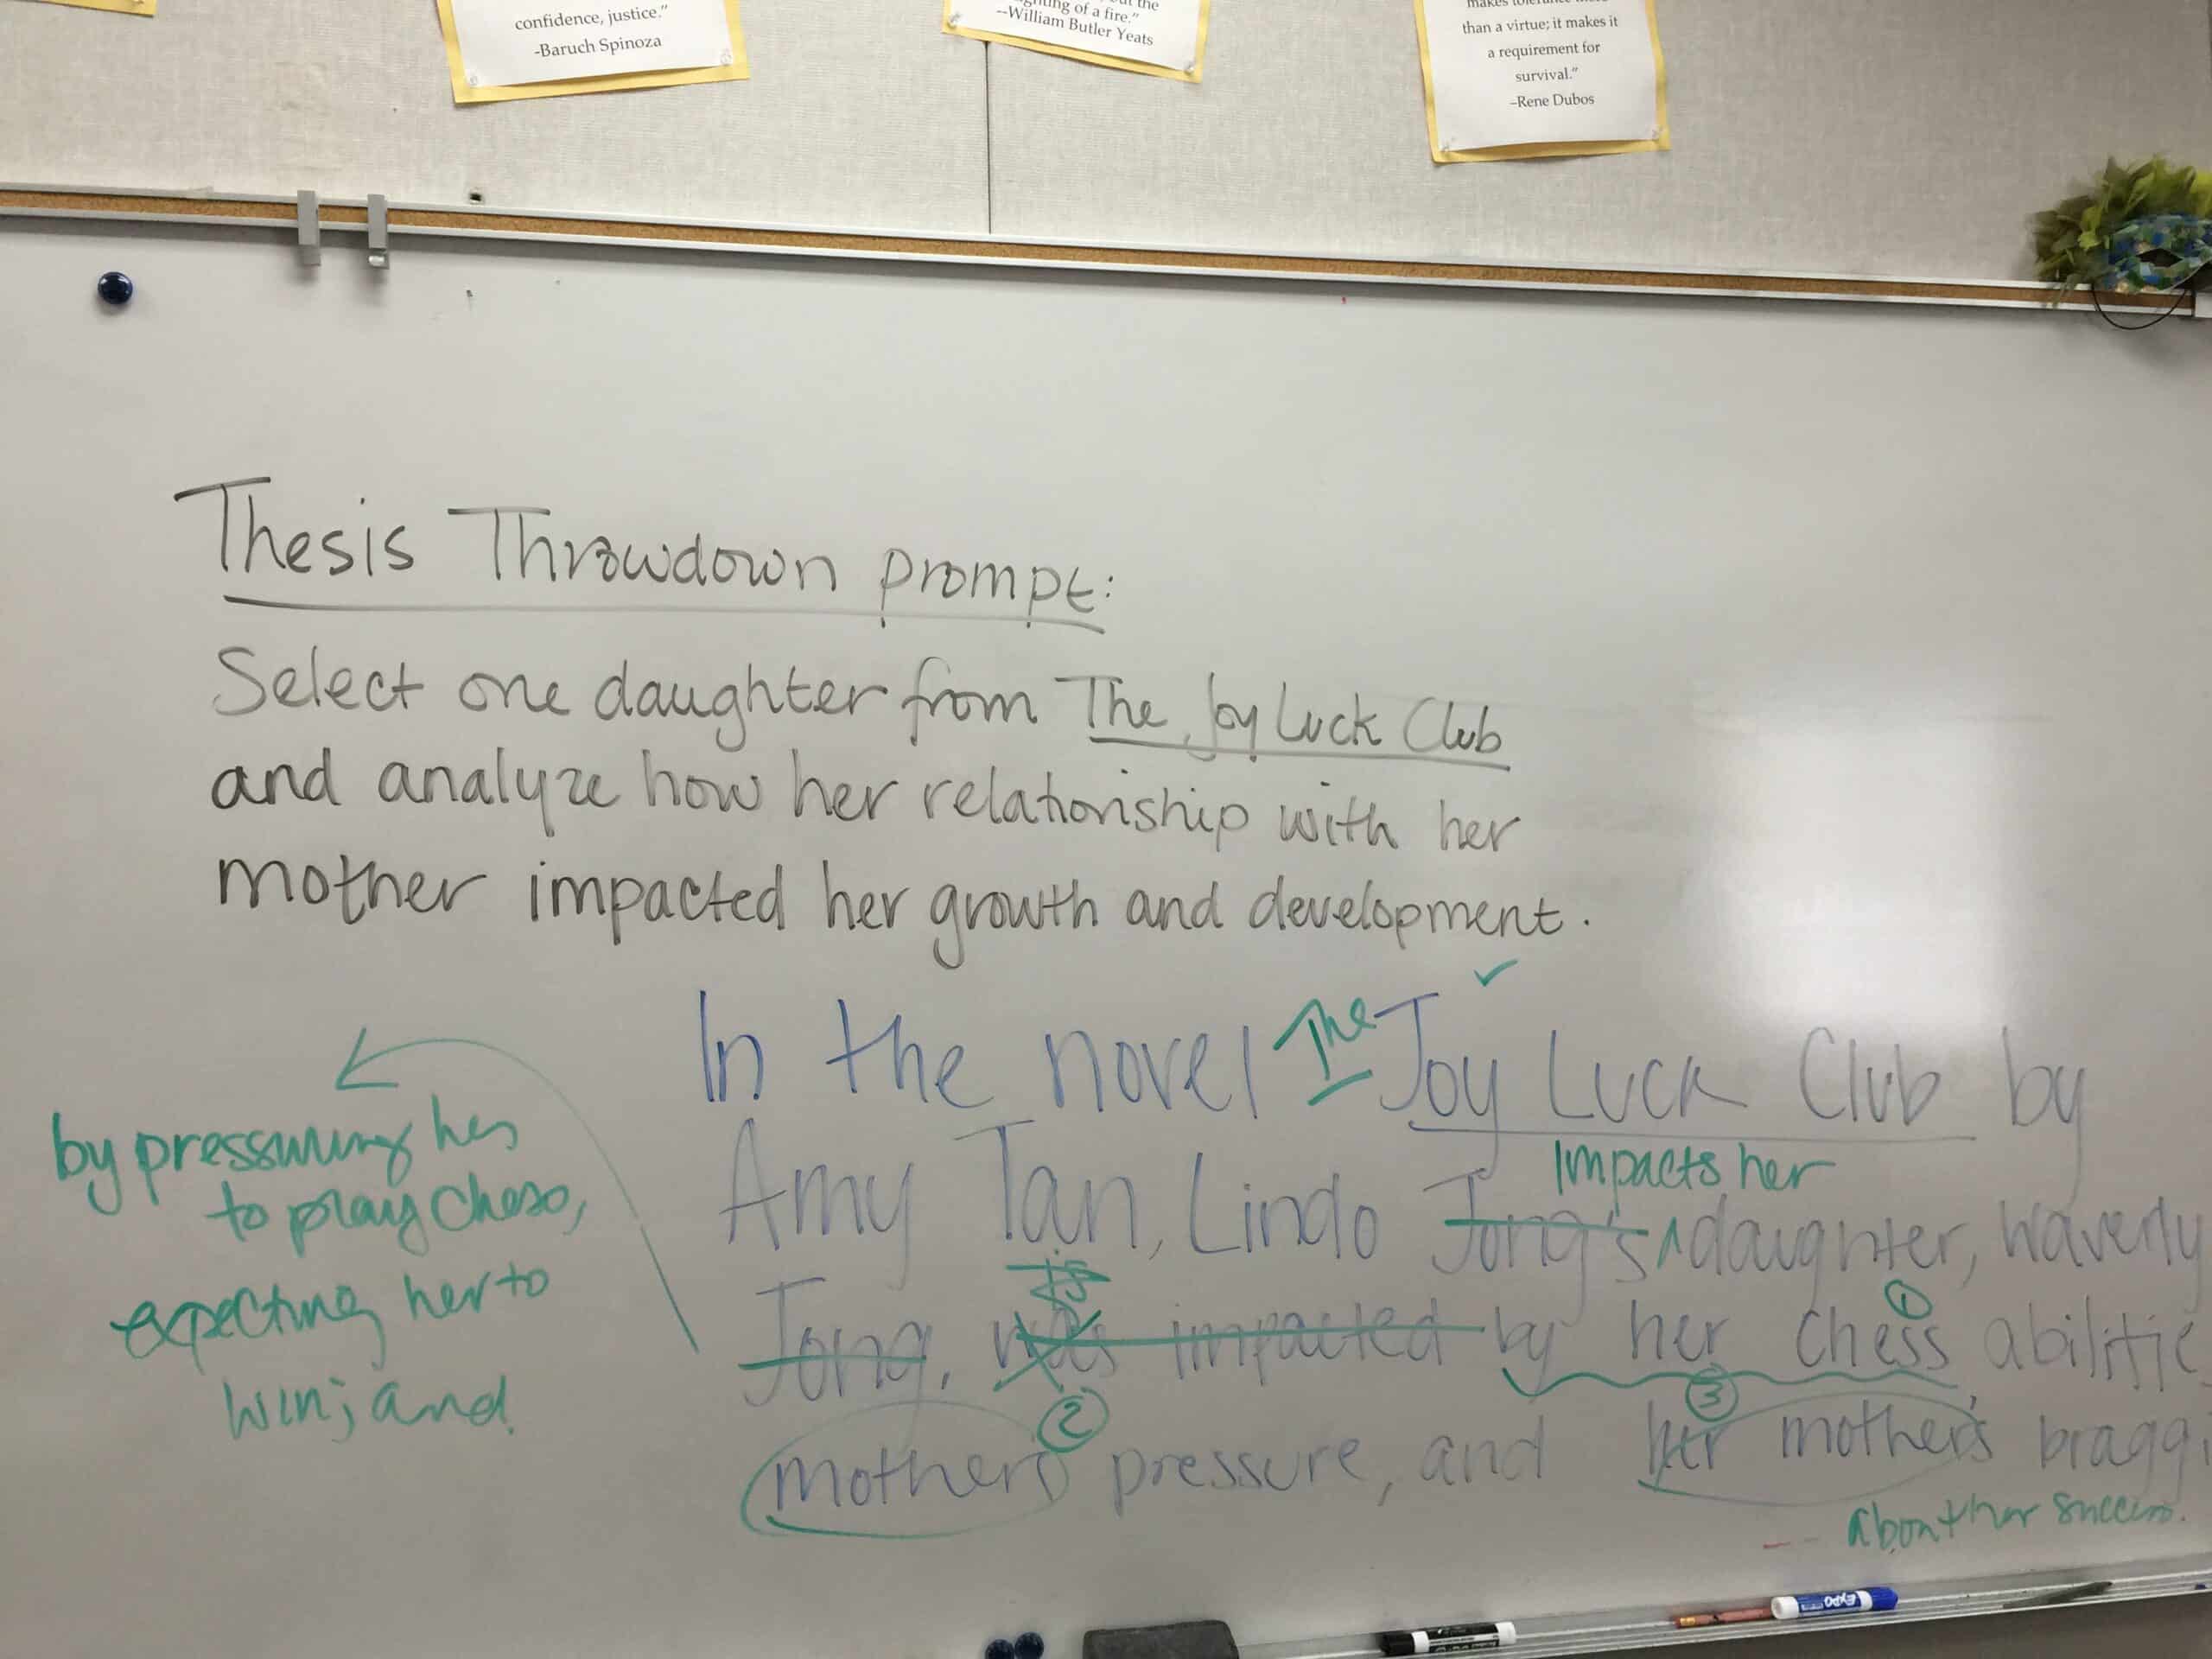 confidence, justice."
-Baruch Spinoza
of a fire."
--William Butler Yeats
than a virtue; it makes it
a requirement for
survival."
–Rene Dubos
Thesis Throwdown prompt:
Select one daughter from The Joy Luck Club
and analyze how her relationship with her
mother impacted her growth and development.
In the novel The Joy Luck Club by
Impacts her
Amy Tan, Lindo Jong's ^ daughter, Waverly
is
Jong, was impacted by her chess abilitie
1
2
3
mother's pressure, and her mother's braggi
about her success.
by pressuring her
to play chess,
expecting her to
win; and
EXPO